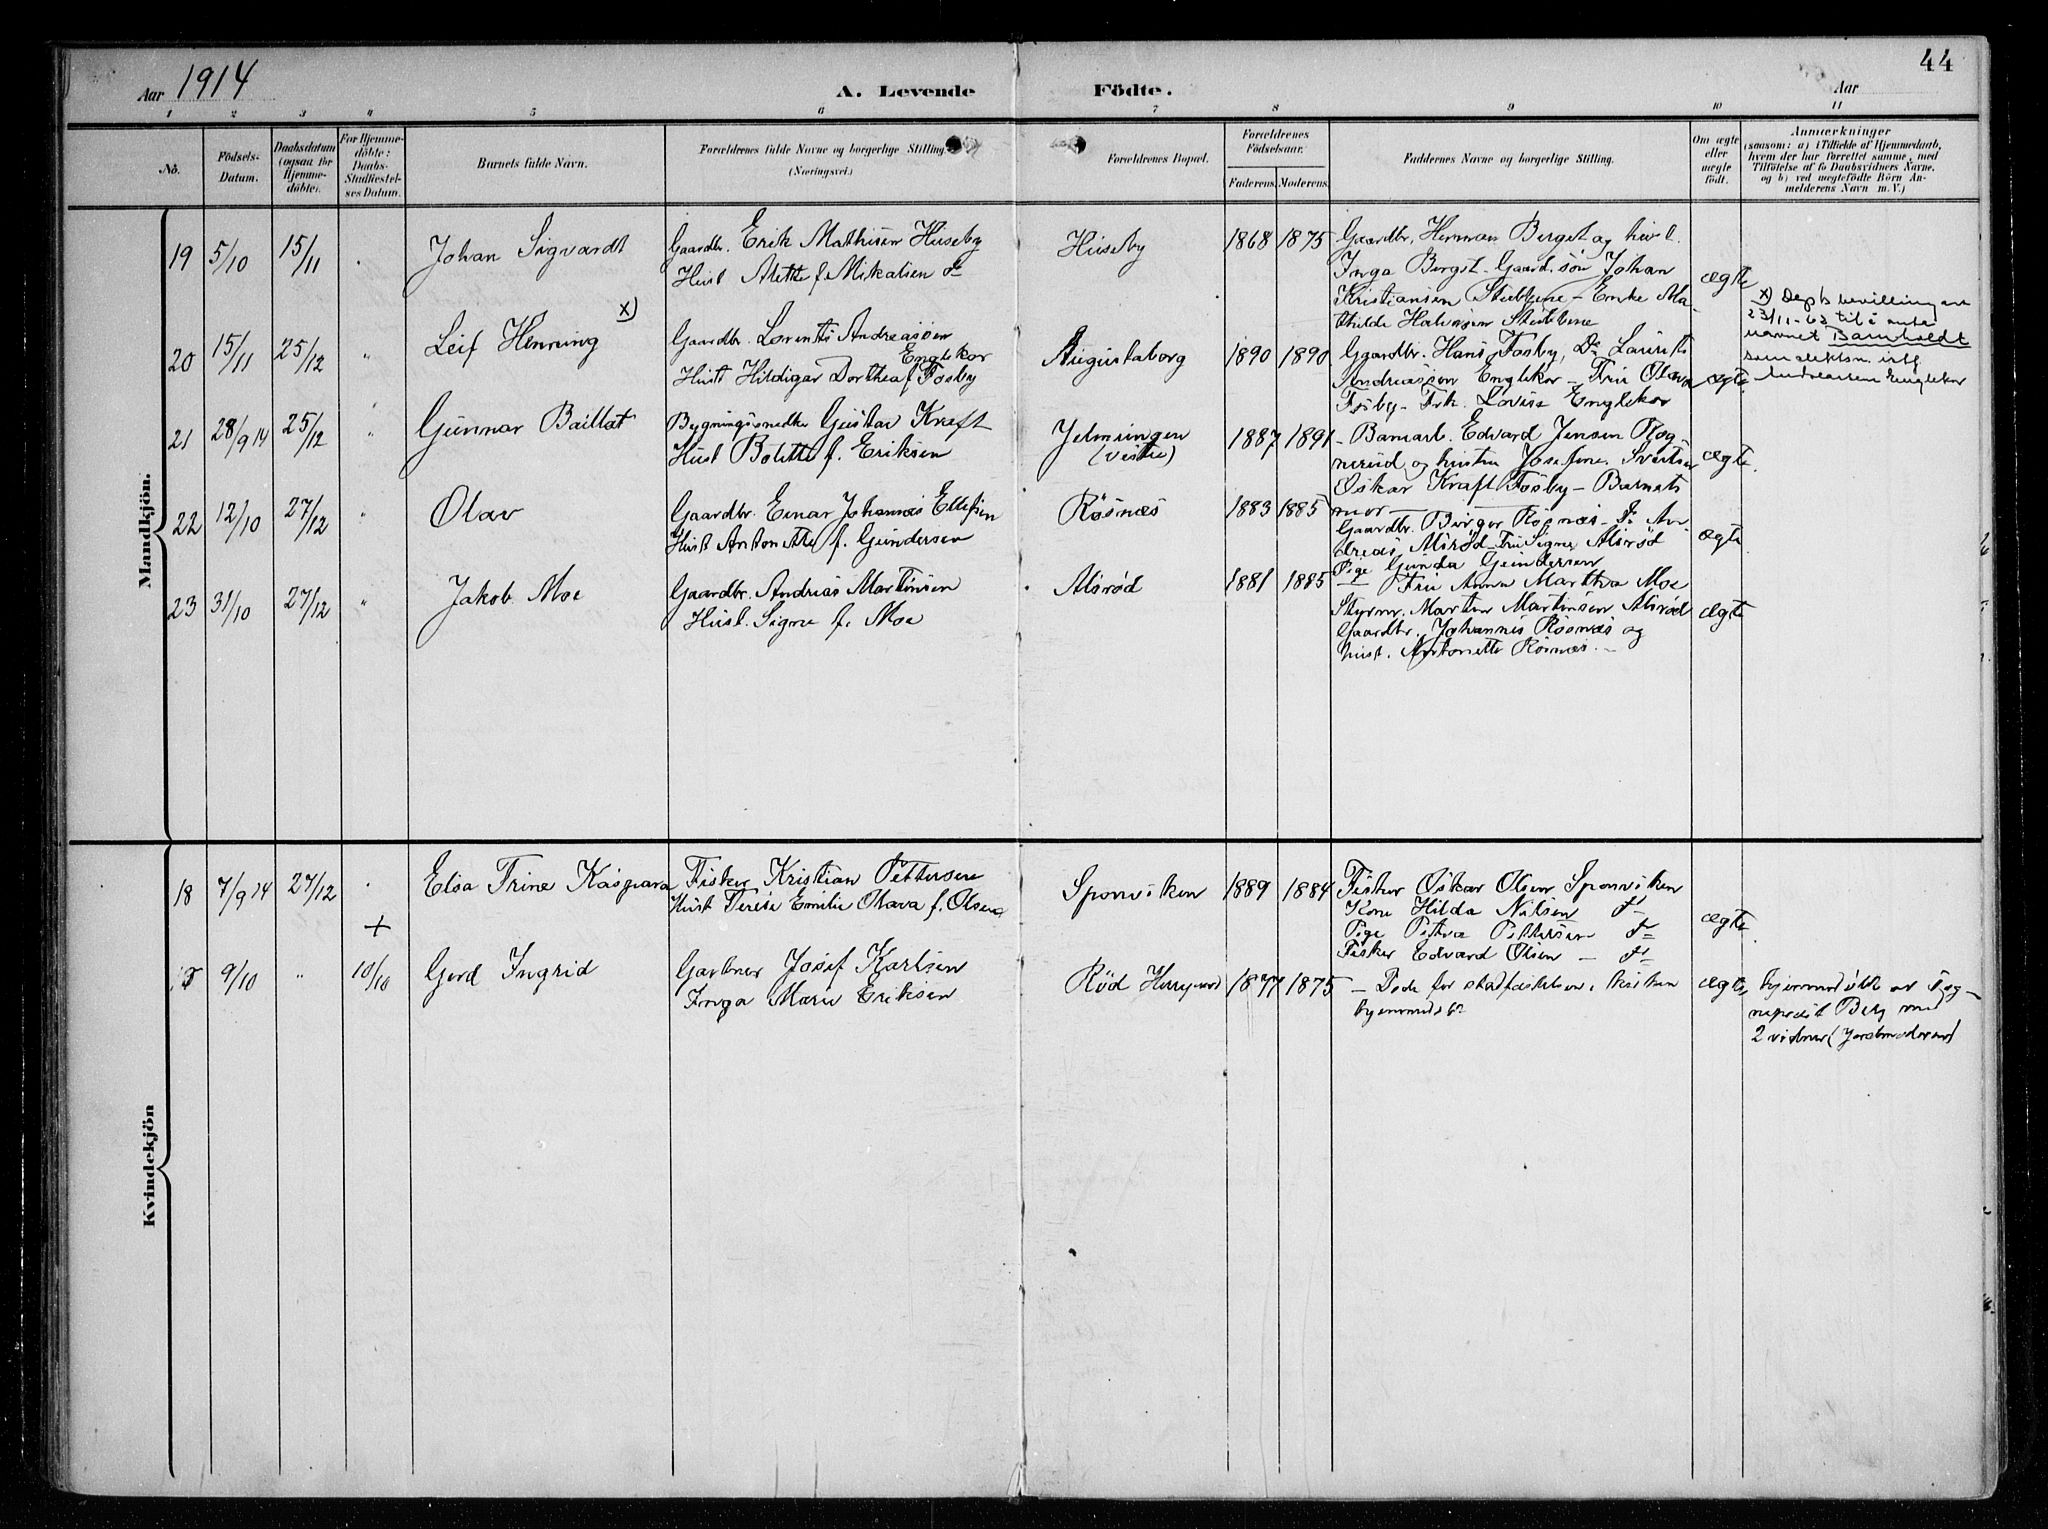 44
Aar 1914
A. Levende Födte.
Aar
1 2 3 4 5 6 7 8 9 10 11
No.
Födsels-Datum.
Daabsdatum (ogsaa for Hjemmedöbte).
For Hjemmedöbte: Daabs-Stadfæstelses Datum.
Barnets fulde Navn.
Forældrenes fulde Navne og borgerlige Stilling
(Næringsvei.)
Forældrenes Bopæl.
Forældrenes Födselsaar.
Faderens. Moderens.
Faddernes Navne og borgerlige Stilling.
Om ægte eller uægte födt.
Anmærkninger
(saasom: a) i Tilfælde af Hjemmedaab,
hvem der har forrettet samme, med
Tilföielse af to Daabsvidners Navne,
og b) ved uægtefödte Börn An-
melderens Navn m. V.)
Mandkjön.
19 5/10 15/11 Johan Sigvardt
Gaardbr. Erik Mathisen Huseby
Hust Alette f. Mikalsen
Huseby 1868 1875
Gaardbr. Herman Berget og hust.
Inga Berget - Gaard.søn Johan
Kristiansen Stubbene - Enke Ma-
thilde Halvorsen Stubbene
ægte
20 15/11 25/12 " Leif Henning x)
Gaardbr. Lorentz Andreassen
Englekor
Hust Hildigar Dorthea f Fosby
Augustaborg 1890 1890
Gaardbr. Hans Fosby, Do Laurits
Andreassen Englekor - Fru Olava
Fosby - Frk. Lovise Englekor
ægte
x) Depts bevilling av
23/11-63 til å anta
navnet Barnholdt
som slektsn. istf.
Andreassen Englekor
21 28/9 14 25/12 " Gunnar Baillat
Bygningssnedker Gustav Kraft
Hust Bolette f. Eriksen
Jelmungen
(vestre)
1887 1891
- Banearb. Edvard Jensen Rog-
nerud og hustru Josefine
Oskar Kraft Fosby - Barnets
mor
ægte.
22 12/10 27/12 " Olav
Gaardbr. Einar Johannes Ellefsen
Hust Antonette f. Gundersen
Røsnæs 1883 1885
Gaardbr. Birger Røsnæs - Do An-
dreas Alsrød - Fru Signe Alsrød
Pige Gunda Gundersen
ægte
23 31/10 27/12 " Jakob Moe
Gaardbr. Andreas Martinsen
Hust. Signe f. Moe
Alsrød 1881 1885
- Fru Anna Marthea Moe
Styrm. Martin Martinsen Alsrød
Gaardbr. Johannes Røsnæs og
hust. Antonette Røsnæs. -
ægte
Kvindekjön
18 7/9 14 27/12 Elsa Trine Kaspara
Fisker Kristian Pettersen
Hust Terese Emilie Olava f. Olsen
Sponviken 1889 1884
Fisker Oskar Olsen Sponviken
Kone Hilda Nilsen Do
Pige Petra Pettersen Do
Fisker Edvard Olsen - Do
ægte
+
9/10 " 10/10 Gerd Ingrid
Gartner Josef Karlsen
Inga Marie Eriksen
Rød Herregaard 1877 1875
- Døde før stadfæstelsen i kirken
hjemmedøbt
ægte,
hjemmedøbt av Sog-
neprest Berg med
2 vidner (Jordmoderen)